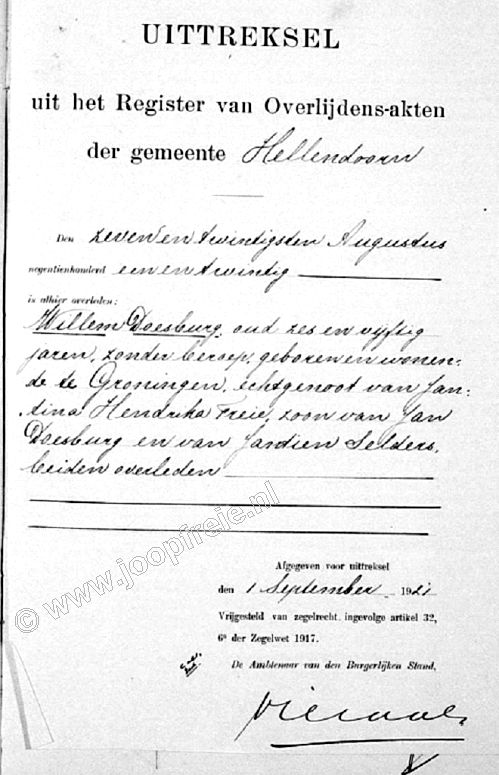 UITTREKSEL
uit het Register van Overlijdens-akten
der gemeente Hellendoorn
Den zeven en twintigsten Augustus
negentienhonderd een en twintig
is alhier overleden:
Willem Doesburg, oud zes en vijftig
jaren, zonder beroep, geboren en wonen-
de te Groningen, echtgenoot van Jan-
tina Hendrika Freie, zoon van Jan
Doesburg en van Jantien Selders,
beiden overleden
© www.joopfreie.nl
Afgegeven voor uittreksel
den 1 September 1921
Vrijgesteld van zegelrecht ingevolge artikel 32,
6e der Zegelwet 1917.
De Ambtenaar van den Burgerlijken Stand,